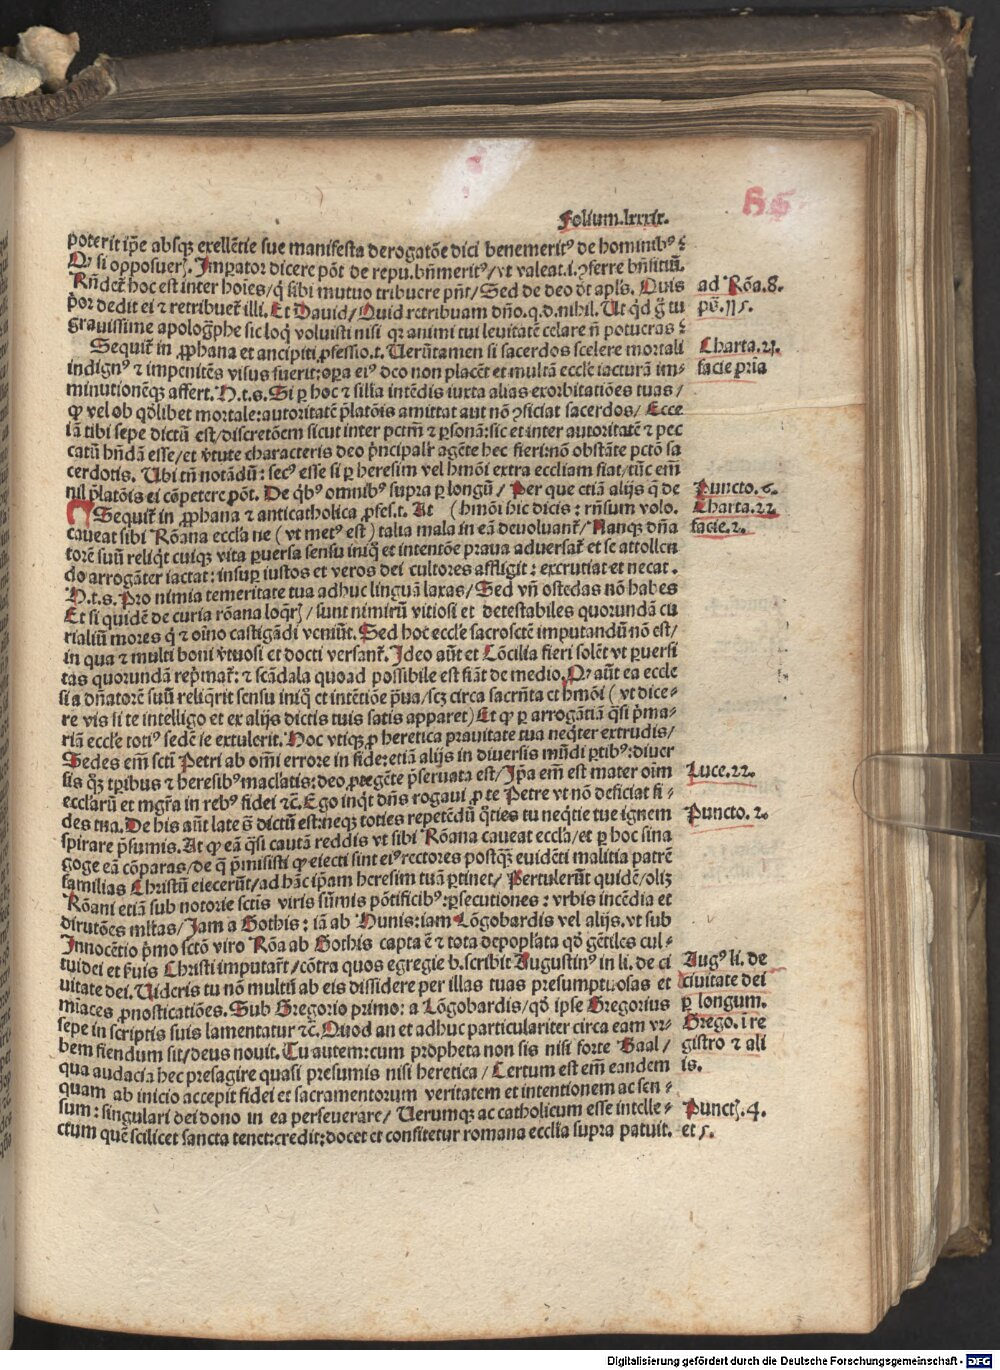 Folium.lxxxix.
86
poterit ip̄e absq̄ꝫ exellētie sue manifesta derogatōe dici benemeritꝰ de hominibꝰ ⁊
Qꝫ si opposuerꝭ. Imꝑator dicere pōt de repu. bn̄meritꝰ/ vt valeat. i. ꝯferre bn̄fitiū.
Rn̄det᷑ hoc est inter hoīes/ q̇ sibi mutuo tribuere pn̄t/ Sed de deo dt̄ apl̄s. Quis
ad Rōa. 8.
p̄or dedit ei ⁊ retribuet᷑ illi. Et Dauid/ Quid retribuam dn̄o. q. d. nihil. Ut qd̄ ḡ tu
pš. 115.
grauissime apologp̄he sic loqͥ voluisti nisi qꝛ animi tui leuitatē celare n̄ potueras ⁊
Sequit᷑ in ꝓphana et ancipiti ꝓfessio. t. Uerūtamen si sacerdos scelere mortali
Charta. 21.
indignꝰ ⁊ impenitēs visus fuerit: oꝑa eiꝰ deo non placēt et multā eccl̄e iacturā im⸗
facie p̄ria
minutionēqꝫ affert. H. t. s. Si ꝑ hoc ⁊ sil̄ia intēdis iuxta alias exorbitatiōes tuas/
ꝙ vel ob qd̄libet mortale: autoritatē p̄latōis amittat aut nō ꝯficiat sacerdos/ Ecce
iā tibi sepe dictū est/ discretōem sicut inter pctm̄ ⁊ ꝑsonā: sic et inter autoritatē ⁊ pec
catū hn̄dā esse/ et v̄tute characteris deo p̄ncipalr̄ agēte hec fieri: nō obstāte pctō sa
cerdotis. Ubi tn̄ notādū: secꝰ esse si ꝑ heresim vel hmōi extra eccliam fiat/ tūc em̄
nil p̄latōis ei cōpetere pōt. De qͥbꝰ omnibꝰ supra ꝑ longū/ Per que etiā alijs q̄ de
Puncto. 6.
Sequit᷑ in ꝓphana ⁊ anticatholica ꝓfes. t. At (hmōi hic dicis: rn̄sum volo.
Charta. 22
caueat sibi Rōana eccl̄a ne (vt metꝰ est) talia mala in eā deuoluant᷑/ Nanqꝫ dn̄a
facie. 2.
torē suū reliqͥt cuiqꝫ vita ꝑuersa sensu iniqͦ et intentōe praua aduersat᷑ et se attollen
do arrogāter iactat: insuꝑ iustos et veros dei cultores affligit: excrutiat et necat.
H. t. s. Pro nimia temeritate tua adhuc linguā laxas/ Sed vn̄ ostēdas nō habes
Et si quidē de curia rōana loqͥrꝭ/ sunt nimirū vitiosi et detestabiles quorundā cu
rialiū mores qͥ ⁊ oīno castigādi veniūt. Sed hoc eccl̄e sacrosctē imputandū nō est/
in qua ⁊ multi boni v̄tuosi et docti versant᷑. Ideo aūt et Cōcilia fieri solēt vt ꝑuersi
tas quorundā rep̄mat᷑: ⁊ scādala quoad possibile est fiāt de medio. Qꝫ aūt ea eccle
sia dn̄atorē suū reliqͥrit sensu iniqͦ et intētiōe p̄ua/ scꝫ circa sacrn̄ta et hmōi (vt dice⸗
re vis si te intelligo et ex alijs dictis tuis satis apparet) Et ꝙ ꝑ arrogātiā qͣsi p̄ma⸗
riā eccl̄e totiꝰ sedē ie extulerit. Hoc vtiqꝫ ꝓ heretica prauitate tua neqͥter extrudis/
Sedes em̄ scti Petri ab om̄i errore in fide: etiā alijs in diuersis mūdi ꝑtibꝰ: diuer
sis qͦꝫ tꝑibus ⁊ heresibꝰ maclatis: deo ꝓtegēte p̄seruata est/ Ip̄a em̄ est mater oīm
Luce. 22.
eccl̄arū et mgr̄a in rebꝰ fidei ⁊c̄. Ego inqͥt dn̄s rogaui ꝓ te Petre vt nō deficiat fi⸗
des tua. De his aūt late s̄ dictū est: neqꝫ toties repetēdū qͦties tu neqͥtie tue ignem
Puncto. 2.
spirare p̄sumis. At ꝙ eā qͣsi cautā reddis vt sibi Rōana caueat eccl̄a/ et ꝑ hoc sina
goge eā cōparas/ de q̄ p̄misisti ꝙ eiecti sint eiꝰ rectores postqͣꝫ euidēti malitia patrē
familias Christū eiecerūt/ ad hāc ip̄am heresim tuā ꝑtinet/ Pertulerūt quidē/ olīꝫ
Rōani etiā sub notorie sctis viris sūmis pōtificibꝰ: ꝑsecutiones: vrbis incēdia et
dirutōes ml̄tas/ Jam a Gothis: iā ab Hunis: iam Lōgobardis vel alijs. vt sub
Innocētio p̄mo sctō viro Rōa ab Gothis capta ē ⁊ tota depopl̄ata qd̄ gētiles cul⸗
tui dei et fiuis Christi imputar̄t/ cōtra quos egregie b. scribit Augustinꝰ in li. de ci
Augꝰ li. de
uitate dei. Uideris tu nō multū ab eis dissidere per illas tuas presumptuosas et
ciuitate dei
mīaces ꝓnosticatiōes. Sub Gregorio primo: a Lōgobardis/ qd̄ ipse Gregorius
ꝑ longum.
sepe in scriptis suis lamentatur ⁊c̄. Quod an et adhuc particulariter circa eam vr⸗
Grego. ī re
bem fiendum sit/ deus nouit. Tu autem: cum propheta non sis nisi forte Baal/
gistro ⁊ ali
qua audacia hec presagire quasi presumis nisi heretica/ Certum est em̄ eandem
is.
quam ab inicio accepit fidei et sacramentorum veritatem et intentionem ac sen⸗
sum: singulari dei dono in ea perseuerare/ Uerumqꝫ ac catholicum esse intelle⸗
Punctꝭ. 4.
ctum quē scilicet sancta tenet: credit: docet et confitetur romana ecclīa supra patuit.
et 5.
Digitalisierung gefördert durch die Deutsche Forschungsgemeinschaft - DFG